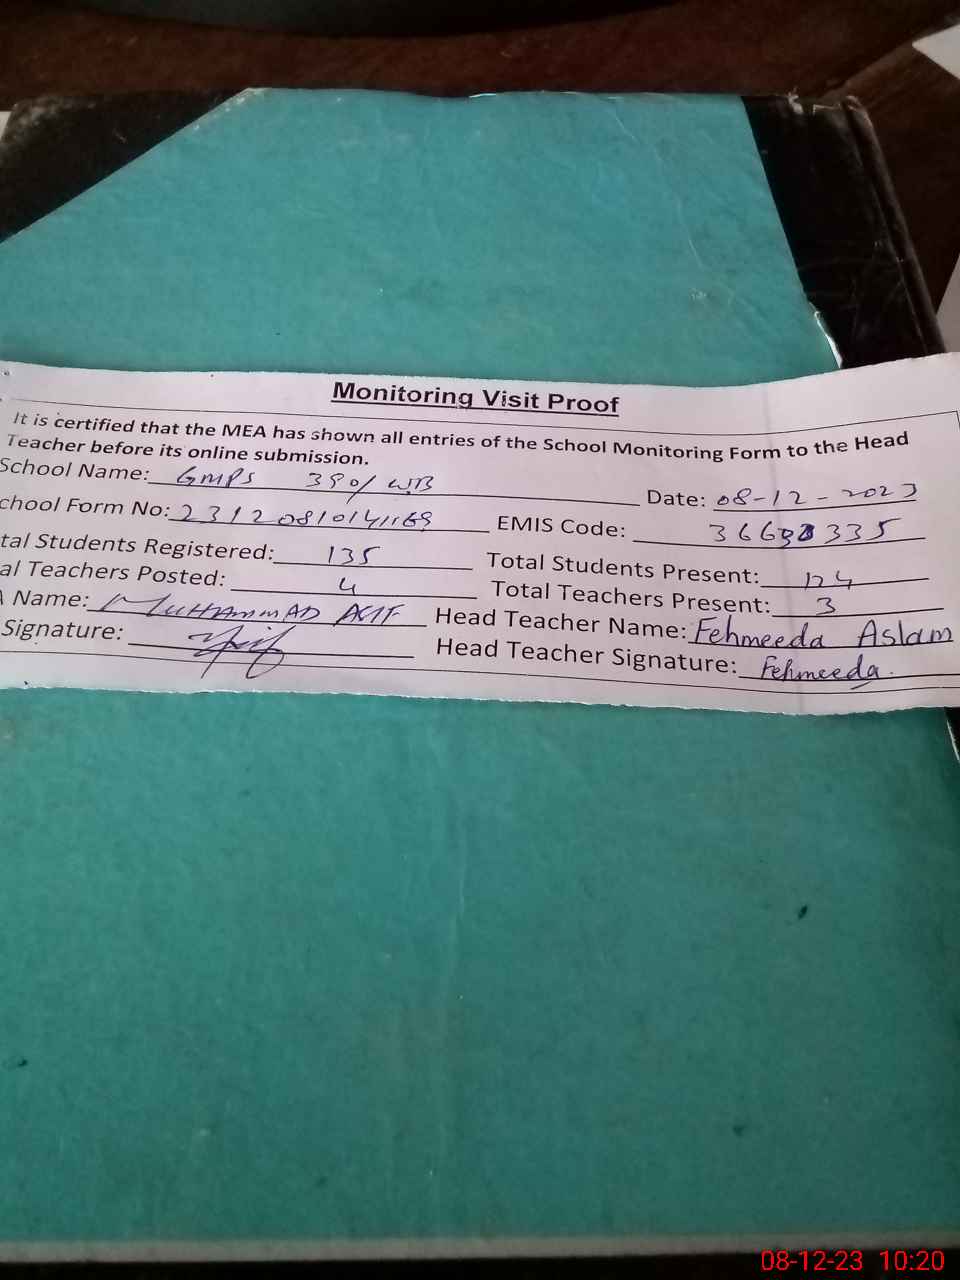 Monitoring Visit Proof
It is certified that the MEA has shown all entries of the School Monitoring Form to the Head
Teacher before its online submission.
School Name: GMPS 390/WB Date: 08-12-2023
chool Form No: EMIS Code:
tal Students Registered: 135 Total Students Present: 124
al Teachers Posted: 4 Total Teachers Present: 3
Name: MUHAMMAD Head Teacher Name: Fehmeeda Aslam
Signature: Head Teacher Signature: Fehmeeda.
08-12-23 10:20